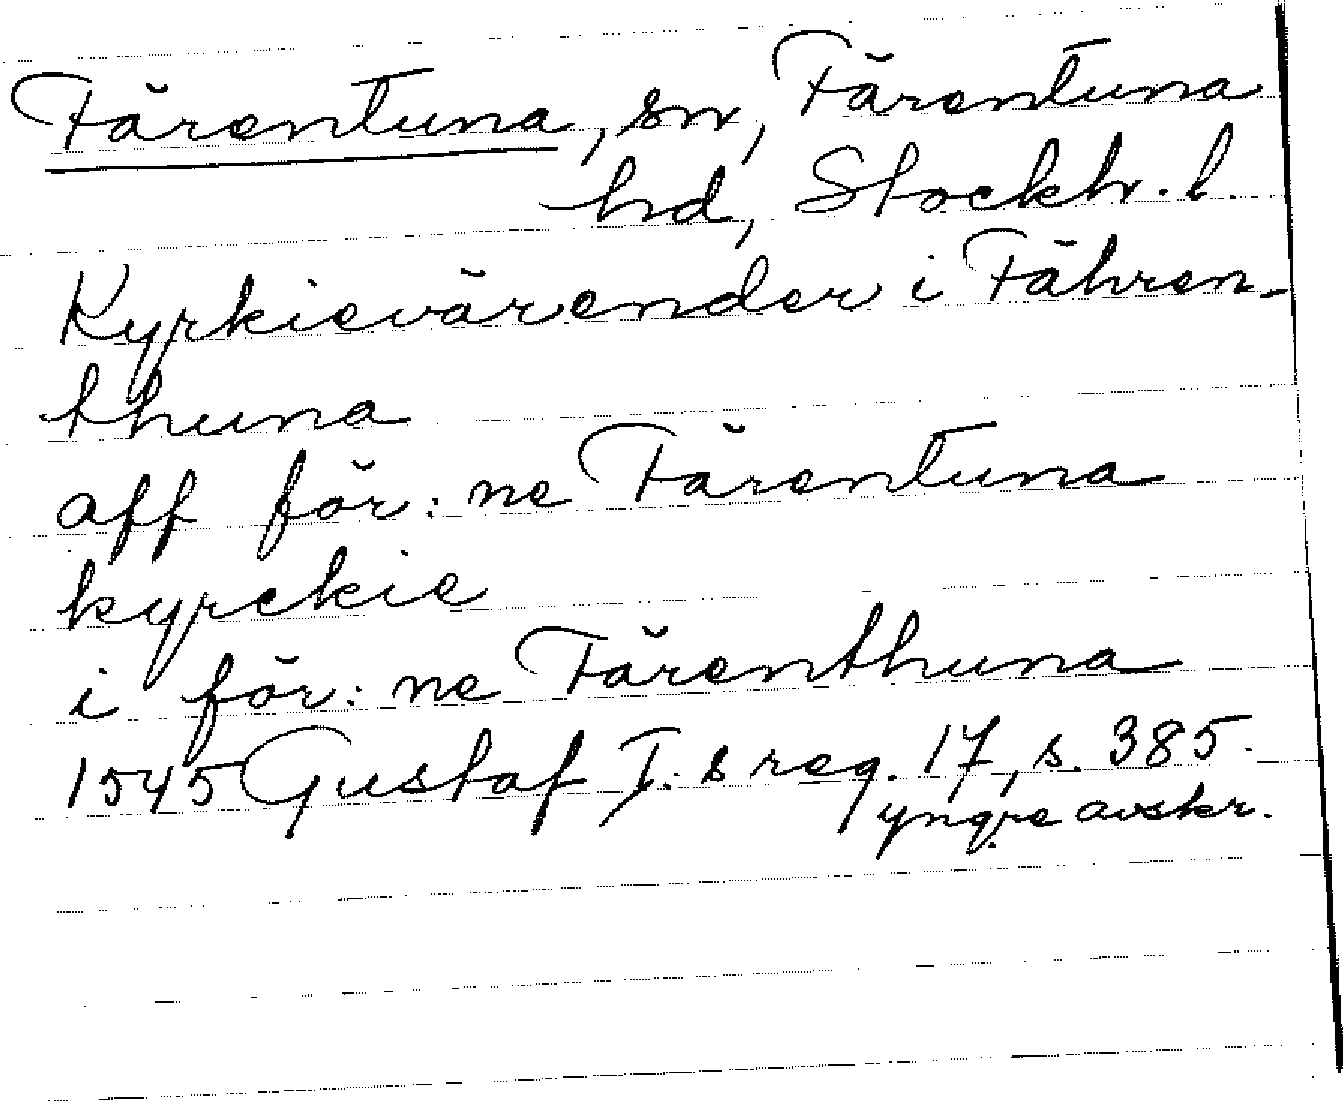 Färentuna, sn, Färentuna
hd, Stockh. l.
Kyrkievärender i Fähren-
thuna
aff för: ne Färentuna
kyrckie
i för: ne Färenthuna
1545 Gustaf I:s reg. 17, s. 385.
yngre avskr.